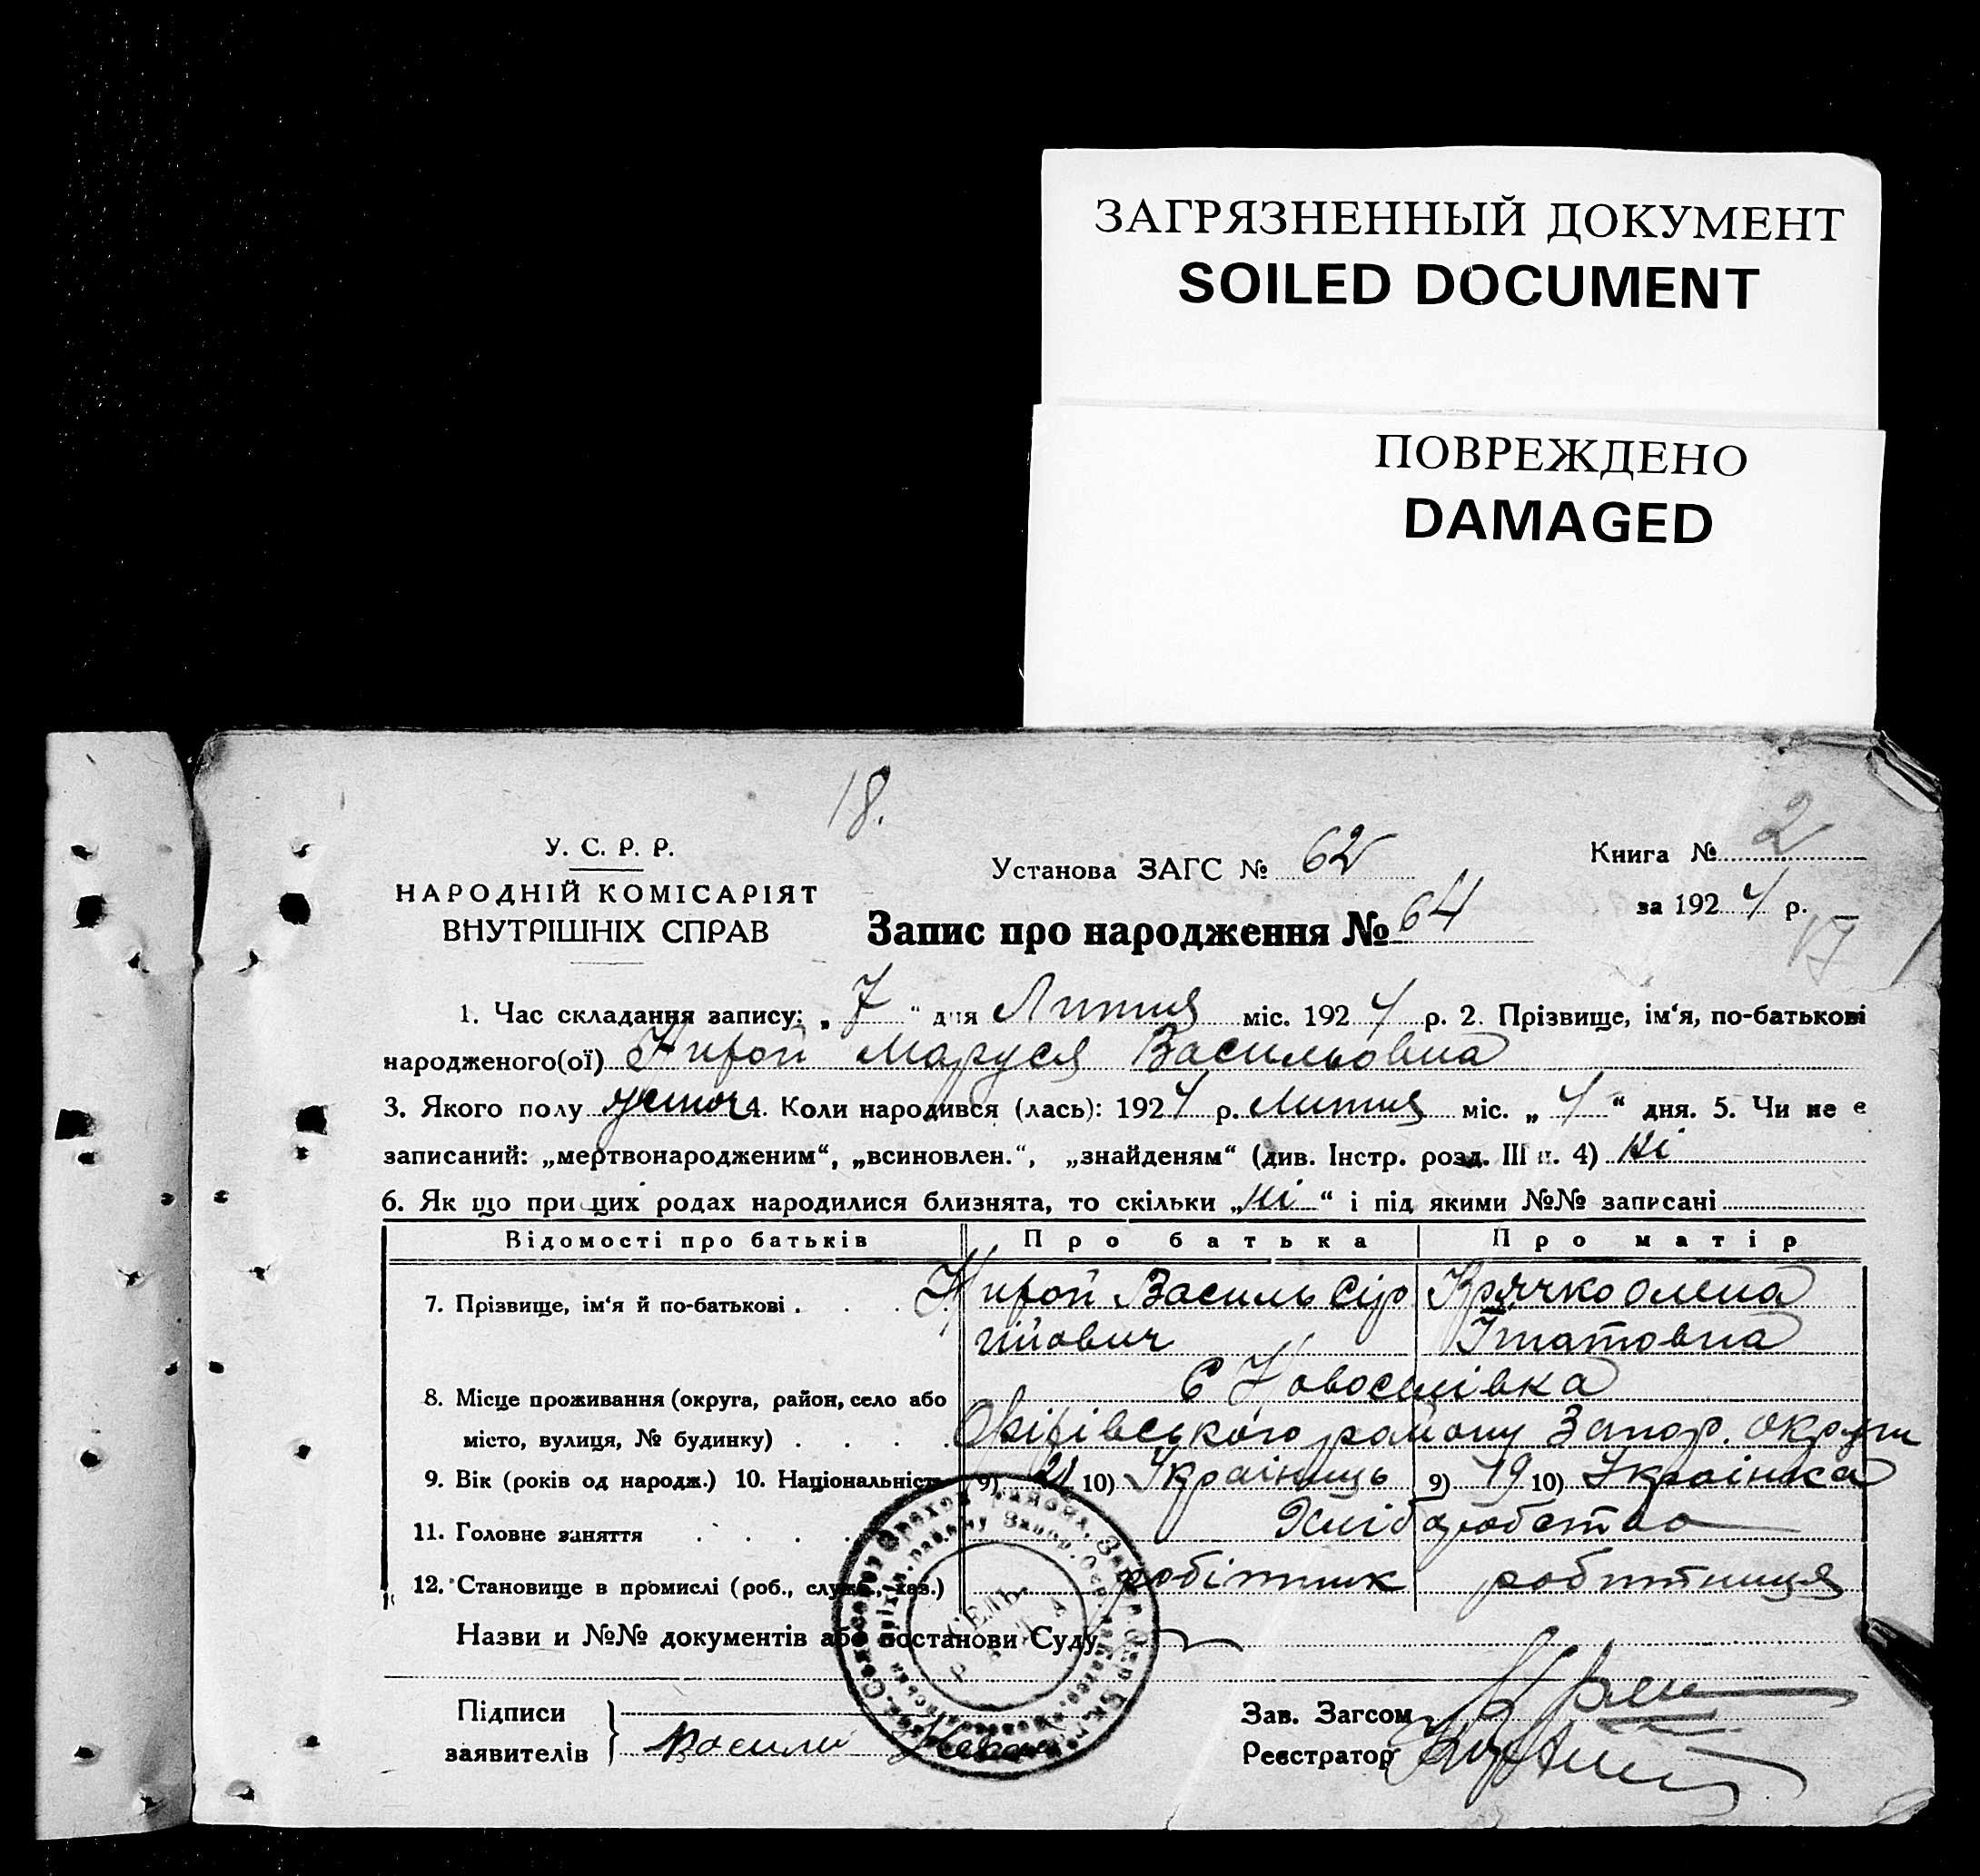 ЗАГРЯЗНЕННЫЙ ДОКУМЕНТ
SOILED DOCUMENT
ПОВРЕЖДЕНО
DAMAGED
18.
У. С. Р. Р.
НАРОДНІЙ КОМІСАРІЯТ
ВНУТРІШНІХ СПРАВ
Установа ЗАГС № 62
Книга № 2
за 1924 р.
17
Запис про народження № 64
1. Час складання запису: „ 7 “ дня Лютня міс. 1924 р. 2. Прізвище, ім‘я, по-батькові
народженого(ої) Маруся Васильовна
3. Якого полу жіноч 4. Коли народився (лась): 1924 р. Лютня міс. „ 4 “ дня. 5. Чи не є
записаний: „мертвонародженим“, „всиновлен.“, „знайденям“ (див. Інстр. розд. III п. 4) ні
6. Як що при цих родах народилися близнята, то скільки „ ні “ і під якими №№ записані
Відомості про батьків Про батька Про матір
7. Прізвище, ім‘я й по-батькові Василь Сер Крячко Олена
гійович Ігнатовна
8. Місце проживання (округа, район, село або С Новоселівка
місто, вулиця, № будинку) Оріхівського району Запор. округи
9. Вік (років од народж.) 10. Національність 9) 21 10) Українець 9) 19 10) Українка
11. Головне заняття Хліборобство
12. Становище в промислі (роб., служ., хаз.) робітник робітниця
Назви и №№ документів або постанови Суду
Підписи
заявителів Василь
Зав. Загсом
Реєстратор